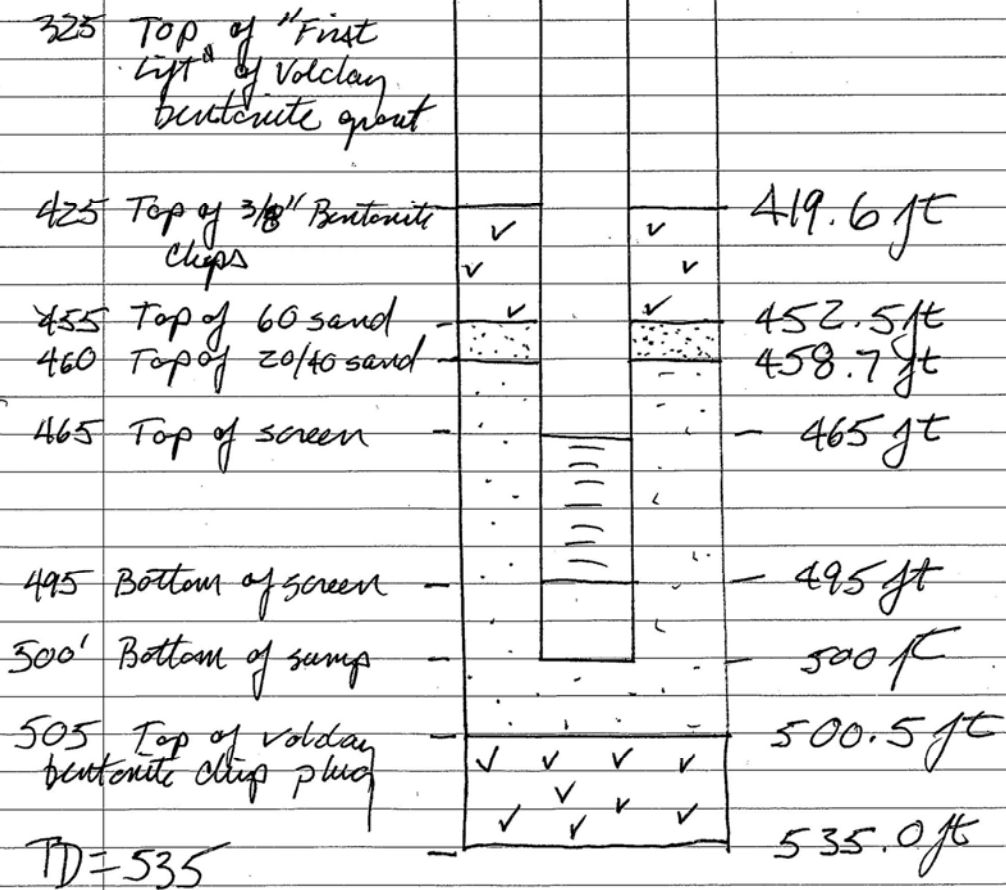 325 Top of "First
Lift" of Volclay
bentonite grout
425 Top of 3/8" Bentonite 419.6 ft
Chips
455 Top of 60 sand 452.5 ft
460 Top of 20/40 sand 458.7 ft
465 Top of screen 465 ft
495 Bottom of screen 495 ft
500' Bottom of sump 500 ft
505 Top of volclay 500.5 ft
bentonite chip plug
TD=535 535.0 ft